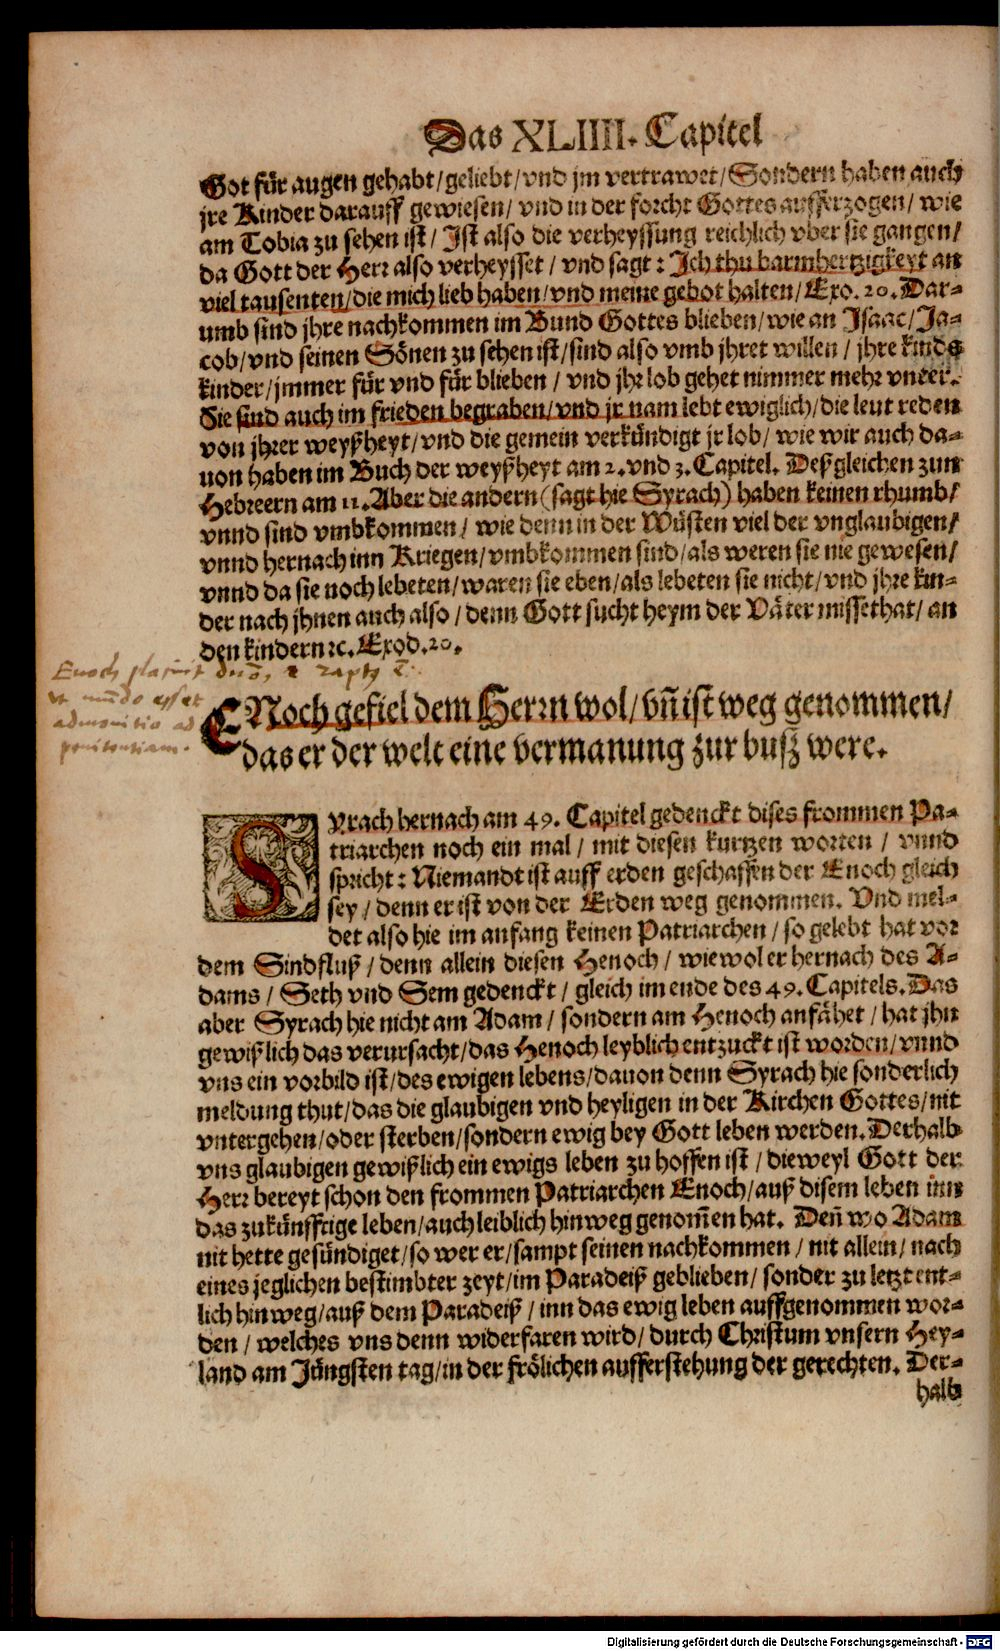 Das XLIIII. Capitel
Got für augen gehabt/geliebt/vnd jm vertrawet/Sondern haben auch
jre Kinder darauff gewiesen/ vnd in der forcht Gottes aufferzogen/ wie
am Tobia zu sehen ist/ Ist also die verheyssung reichlich vber sie gangen/
da Gott der Herr also verheysset/ vnd sagt: Ich thu barmhertzigkeyt an
viel tausenten/die mich lieb haben/vnd meine gebot halten/ Exo. 20. Dar-
umb sind jhre nachkommen im Bund Gottes blieben/wie an Isaac/Ja-
cob/vnd seinen Sönen zu sehen ist/sind also vmb jhret willen/ jhre kinds
kinder/jmmer für vnd für blieben/ vnd jhr lob gehet nimmer mehr vnter.
Sie sind auch im frieden begraben/vnd jr nam lebt ewiglich/die leut reden
von jhrer weyßheyt/vnd die gemein verkündigt jr lob/ wie wir auch da-
uon haben im Buch der weyßheyt am 2. vnd 3. Capitel. Deßgleichen zun
Hebreern am 11. Aber die andern (sagt hie Syrach) haben keinen rhumb/
vnnd sind vmbkommen/ wie denn in der Wüsten viel der vnglaubigen/
vnnd hernach inn Kriegen/vmbkommen sind/als weren sie nie gewesen/
vnnd da sie noch lebeten/waren sie eben/als lebeten sie nicht/vnd jhre kin-
der nach jhnen auch also/ denn Gott sucht heym der Väter missethat/ an
den kindern ꝛc. Exod. 20.
Enoch placuit dn̄o, & raptꝰ ē:
vt mūdo esset
admonitio ad
penitentiam.
ENoch gefiel dem Herrn wol/vn̄ ist weg genommen/
das er der welt eine vermanung zur busz were.
SYrach hernach am 49. Capitel gedenckt dises frommen Pa-
triarchen noch ein mal/ mit diesen kurtzen worten/ vnnd
spricht: Niemandt ist auff erden geschaffen der Enoch gleich
sey/ denn er ist von der Erden weg genommen. Vnd mel-
det also hie im anfang keinen Patriarchen/ so gelebt hat vor
dem Sindfluß/ denn allein diesen Henoch/ wiewol er hernach des A-
dams/ Seth vnd Sem gedenckt/ gleich im ende des 49. Capitels. Das
aber Syrach hie nicht am Adam/ sondern am Henoch anfähet/ hat jhn
gewißlich das verursacht/das Henoch leyblich entzuckt ist worden/vnnd
vns ein vorbild ist/des ewigen lebens/dauon denn Syrach hie sonderlich
meldung thut/das die glaubigen vnd heyligen in der Kirchen Gottes/nit
vntergehen/oder sterben/sondern ewig bey Gott leben werden. Derhalb
vns glaubigen gewißlich ein ewigs leben zu hoffen ist/ dieweyl Gott der
Herr bereyt schon den frommen Patriarchen Enoch/auß disem leben inn
das zukünfftige leben/auch leiblich hinweg genom̄en hat. Den̄ wo Adam
nit hette gesündiget/so wer er/sampt seinen nachkommen/ nit allein/ nach
eines jeglichen bestimbter zeyt/im Paradeiß geblieben/ sonder zu letzt ent-
lich hinweg/auß dem Paradeiß/ inn das ewig leben auffgenommen wor-
den/ welches vns denn widerfaren wird/ durch Christum vnsern Hey-
land am Jüngsten tag/in der frölichen aufferstehung der gerechten. Der-
halb
Digitalisierung gefördert durch die Deutsche Forschungsgemeinschaft - DFG